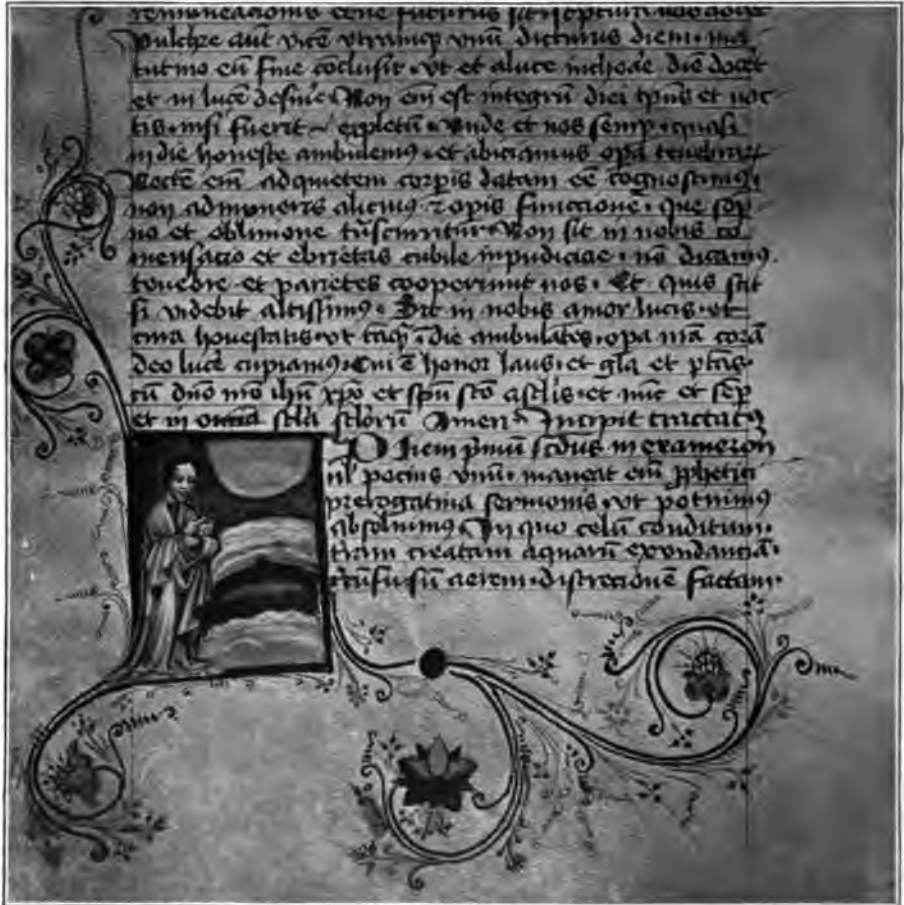 remuneracionis
Pulchre aut vice vtramqꝫ vnū dicturus diem · ma
tutino eū fine cōclusit · vt et a luce inchoar̄ diē docēt
et in lucē desinē · Non em̄ est integrū diei tp̄us et noc
tis · nisi fuerit expletū · Vnde et nos semꝑ · quasi
in die honeste ambulemꝰ · et abiciamus oꝑa tenebraꝝ
Noctē em̄ ad quietem corꝑis datam eē cognoscimꝰ ·
non ad muneris alicuiꝰ ⁊ oꝑis functione · que sōp
no et obliuione Non sit in nobis cō
messacio et ebrietas cubile inpudicicie · nō dicamꝰ ·
tenebre · et parietes cooperiunt nos · Et quis scit
si videbit altissimꝰ · Sit in nobis amor lucis · et
cura honestatis · vt tāqͣ ī die ambulātes · oꝑa nr̄a corā
deo lucē cupiamꝰ · Cui ē honor laus · et gl̄a et ptās ·
cū dn̄o nr̄o ih̄u xp̄o et sp̄u sc̄o a sc̄lis · et nūc et semꝑ
et in omīa scl̄a scl̄orū Amen · Incipit tractatꝰ
Diem pͥmū scd̄us in exameron
ul̄ pocius vnū · maneat em̄ ꝓphetici
prerogatiua sermonis · vt potuimꝰ
absoluimꝰ · In quo celū conditum ·
t̄ram creatam aquarū exundanciā ·
circūfusū aerem · discrecionē factam ·